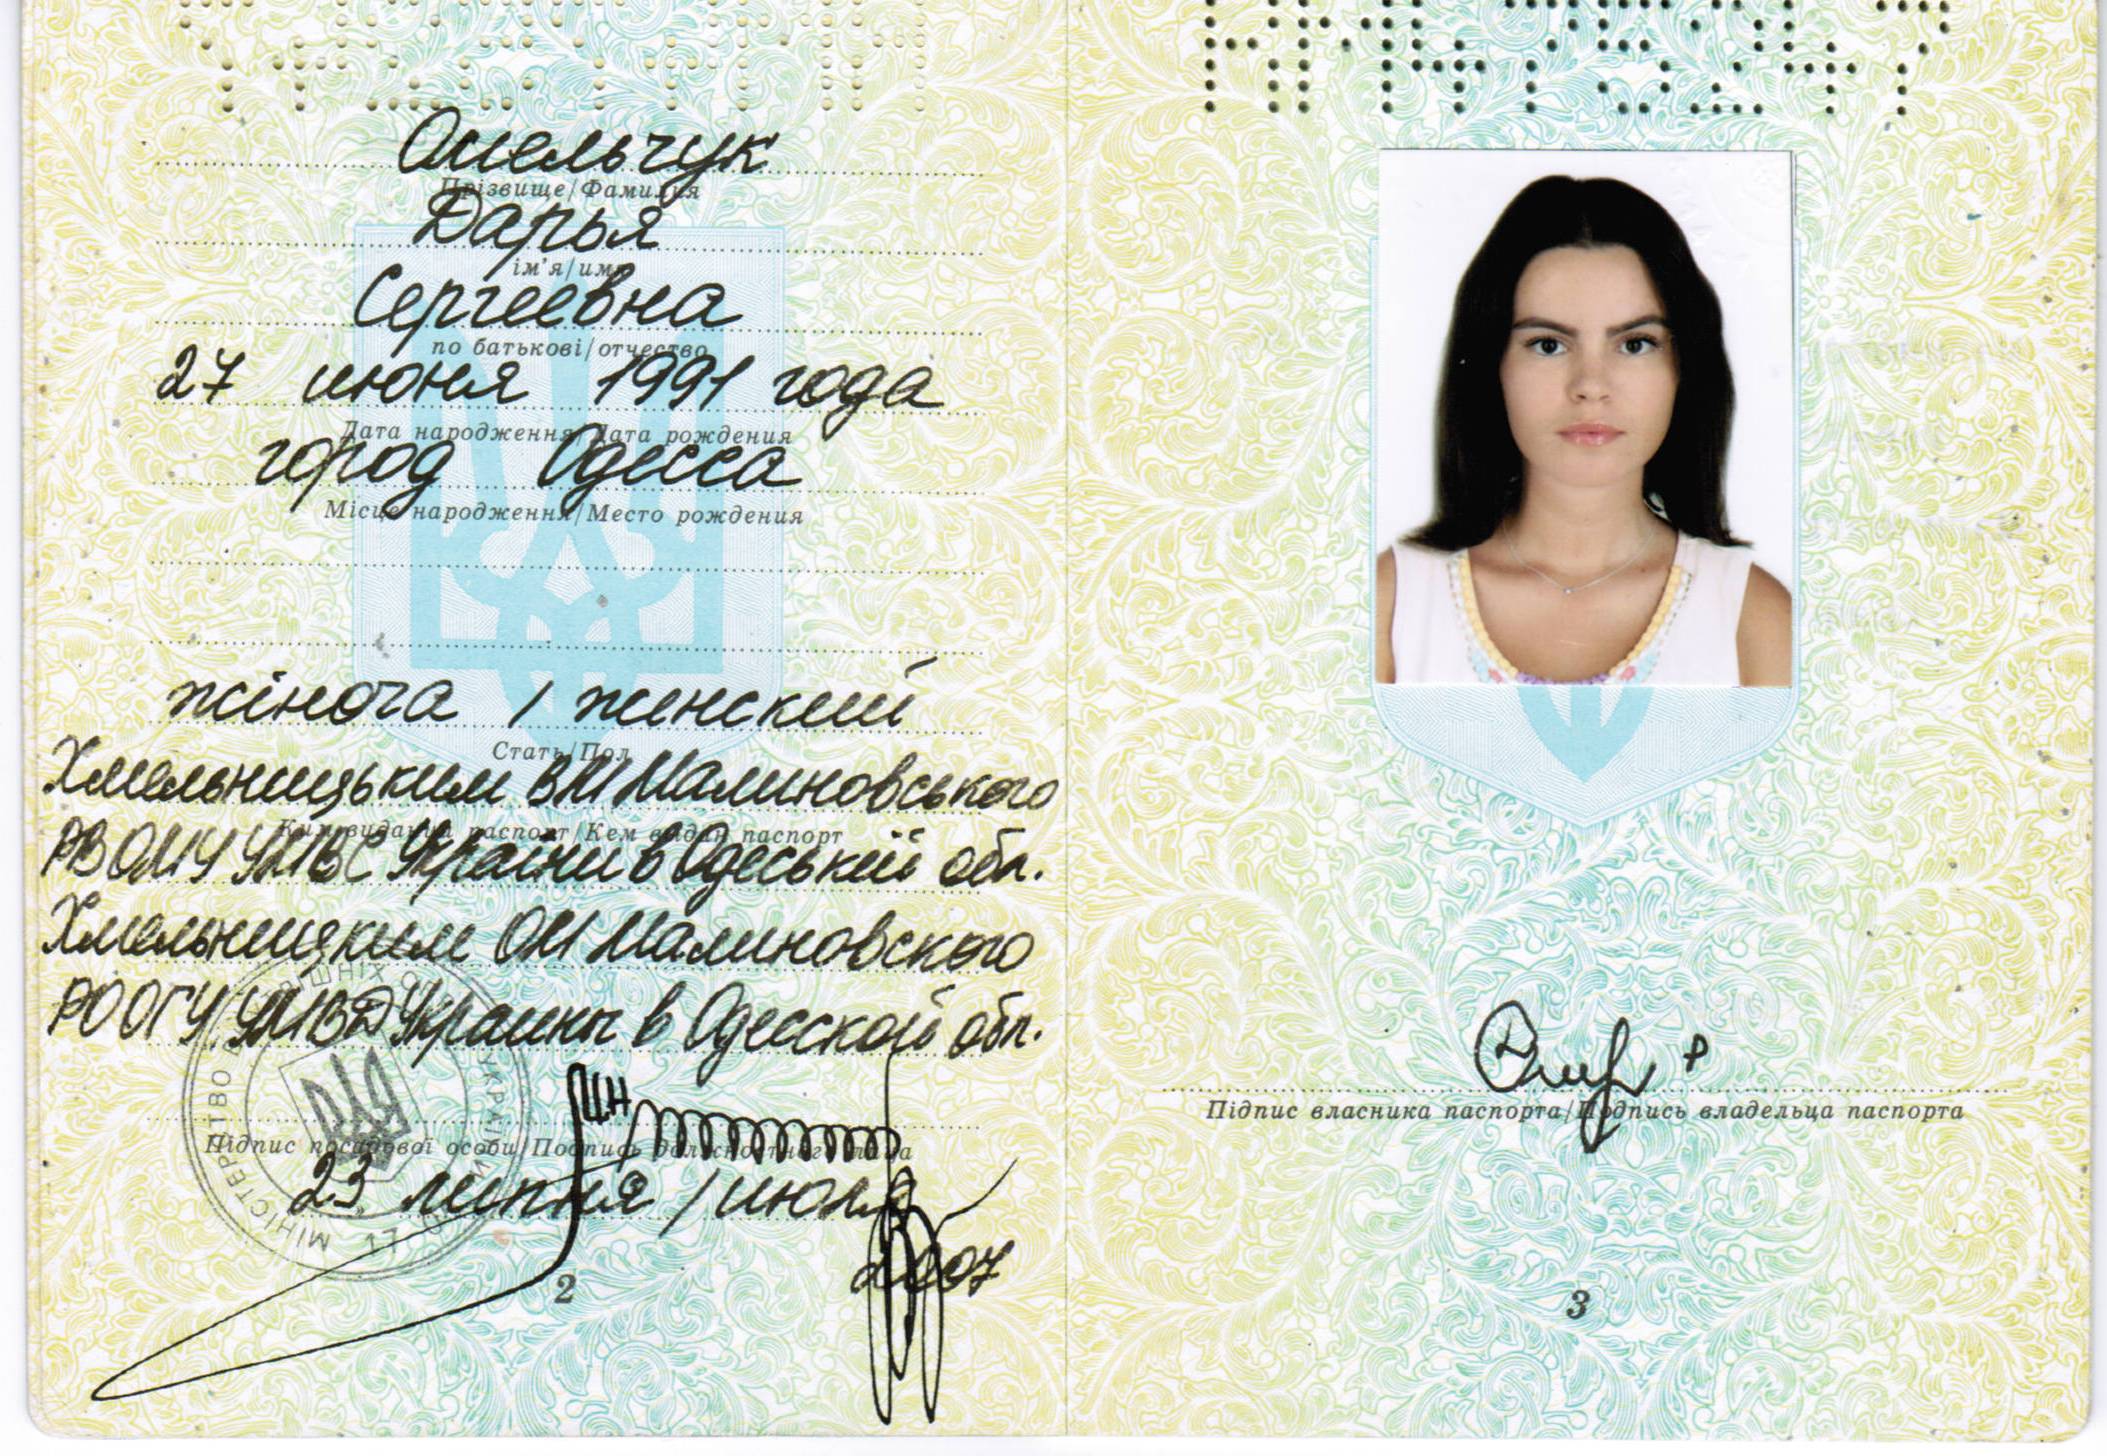 Омельчук
Прізвище/Фамилия
Дарья
ім'я/имя
Сергеевна
по батькові/отчество
27 июня 1991 года
Дата народження/Дата рождения
город Одесса
Місце народження/Место рождения
жіноча / женский
Стать/Пол
Хмельницьким ВМ Малиновського
Ким виданий паспорт/Кем выдан паспорт
РВ ОМУ УМВС України в Одеській обл.
Хмельницким ОМ Малиновского
РО ОГУ УМВД Украины в Одесской обл.
Підпис посадової особи/Подпись должностного лица
23 липня / июля
2007
2
Підпис власника паспорта/Подпись владельца паспорта
3